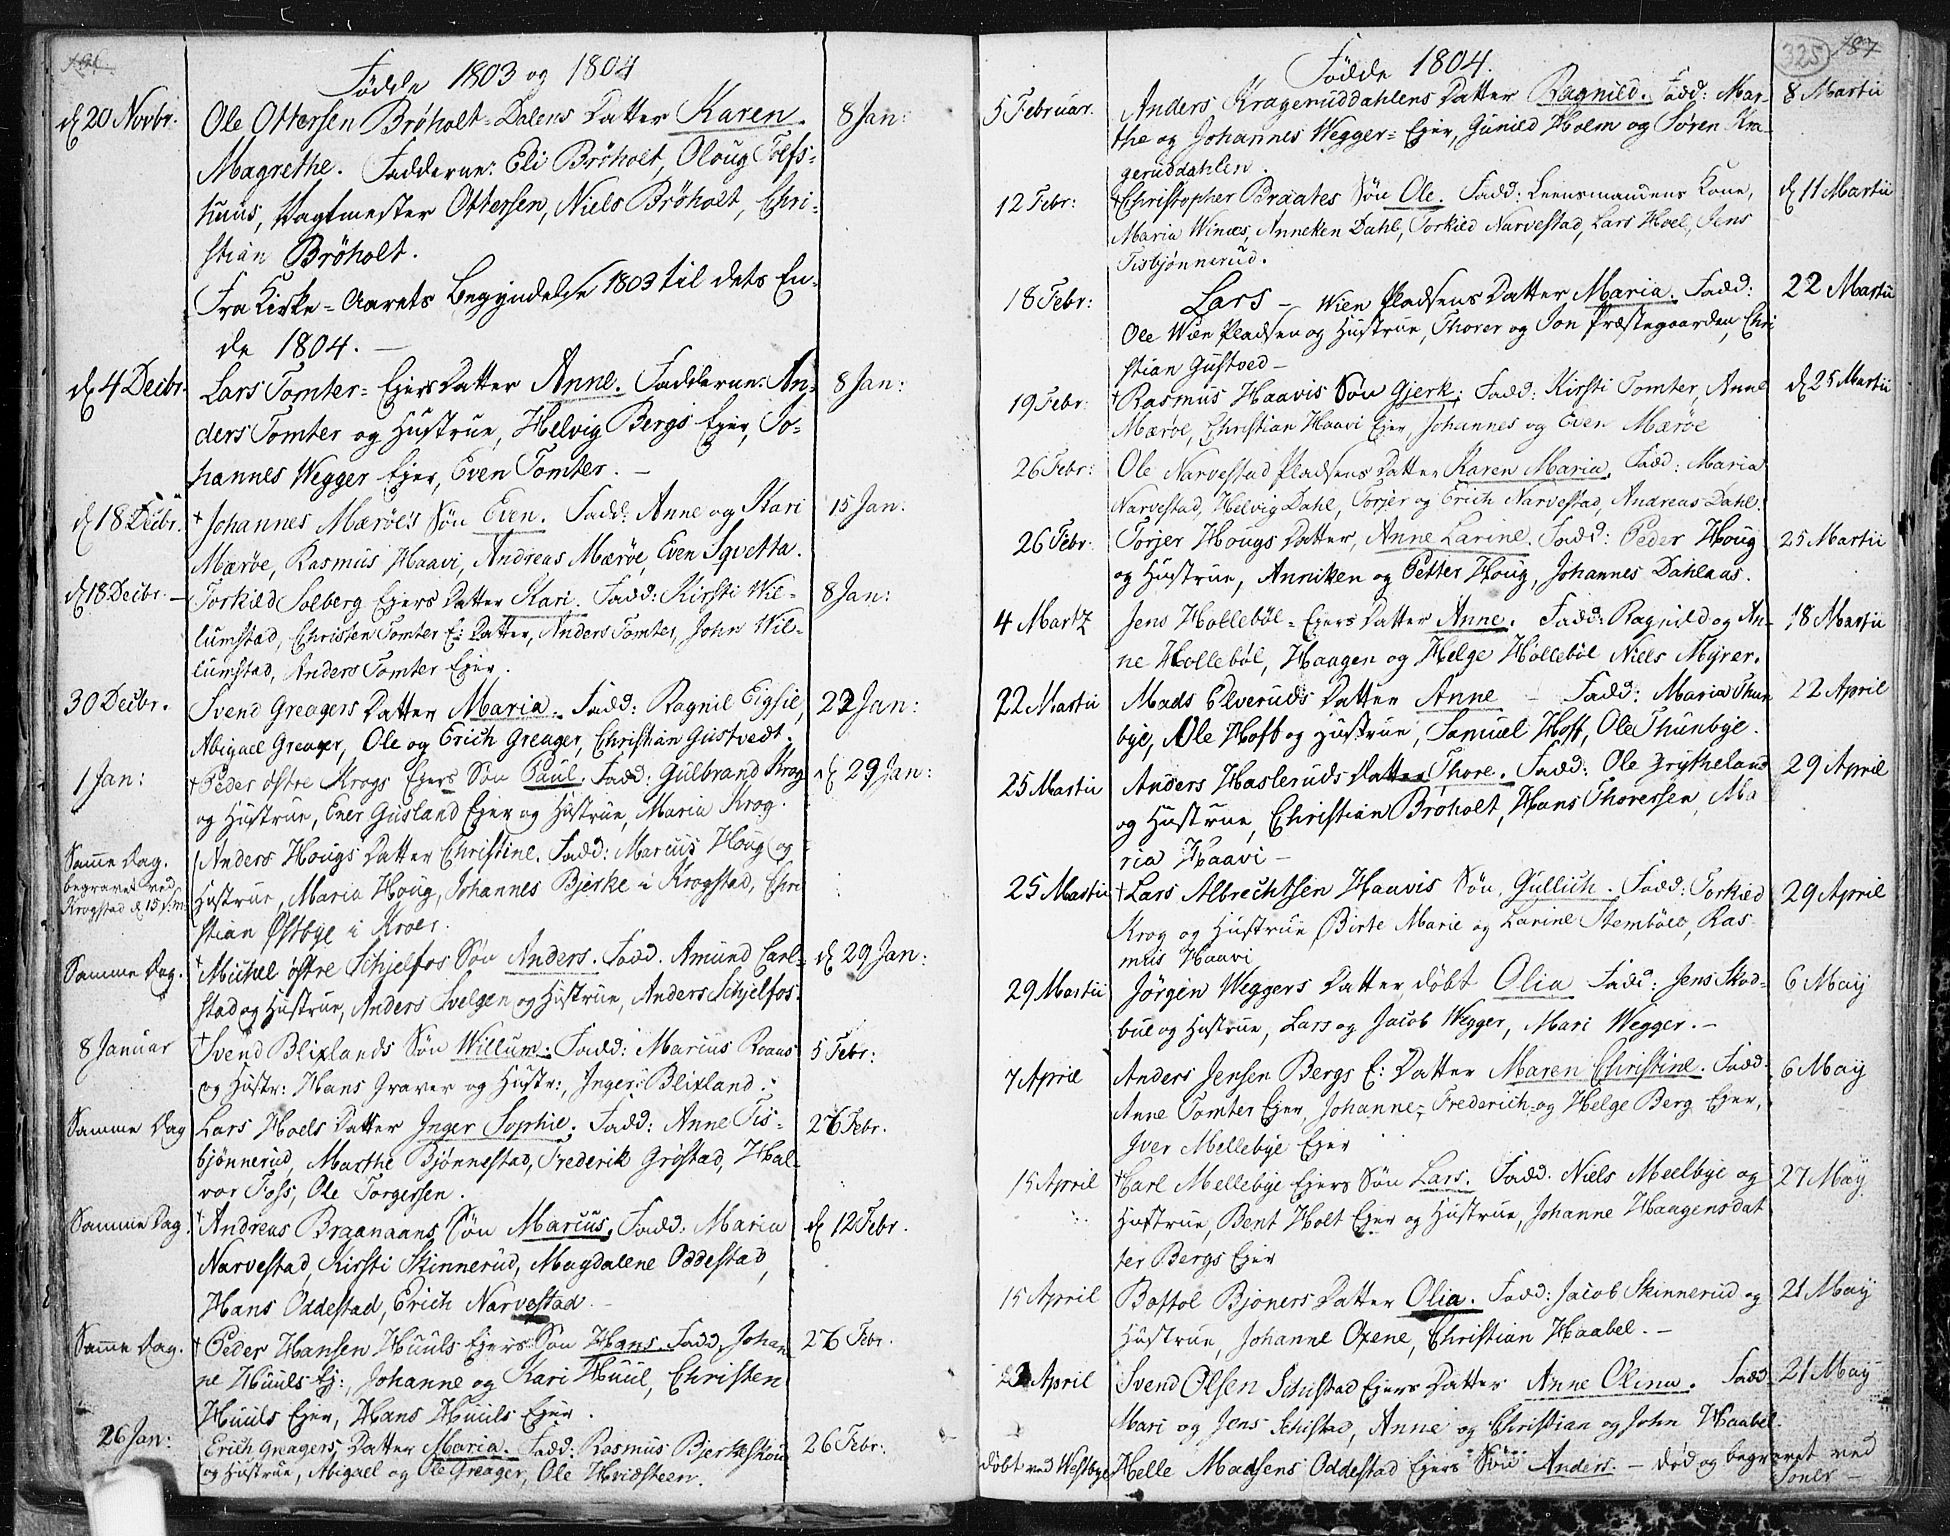 186.
Fødde 1803 og 1804
d 20 Novbr. Ole Ottersen Brøholt-Dalens Datter Karen 8 Jan:
Magrethe. Fadderne: Eli Brøholt, Oloug Tolfs-
huus, Vagtmester Ottersen, Niels Brøholt, Chri-
stian Brøholt.
Fra Kirke-Aarets Begyndelse 1803 til dets En-
de 1804. —
d 4 Decbr. Lars Tomter-Ejers Datter Anne. Fadderne: An- 8 Jan:
ders Tomter og Hustrue, Helvig Bergs Ejer, Jo-
hannes Wegger Ejer, Even Tomter. —
d 18 Decbr. † Johannes Mærøe's Søn Even. Fadd: Anne og Kari 15 Jan:
Mærøe, Rasmus Haavi, Andreas Mærøe, Even Sqvetta.
d 18 Decbr. — Torkild Solberg Ejers Datter Kari. Fadd: Kirsti Wil- 8 Jan:
lumstad, Christen Tomter E: Datter, Anders Tomter, John Wil-
lumstad, Anders Tomter Ejer.
30 Decbr. Svend Greagers Datter Maria. Fadd: Ragnil Eigsie, 22 Jan:
Abigael Greager, Ole og Erich Greager, Christian Gustvedt.
1 Jan: † Peder østre Krogs Ejers Søn Paul. Fadd: Gulbrand Krog d 29 Jan:
og Hustrue, Ener Gusland Ejer og Hustrue, Maria Krog.
Samme Dag. Anders Hougs Datter Christine. Fadd: Marcus Houg og
begravet ved Hustrue, Maria Houg, Johannes Bjerke i Krogstad, Chri
Krogstad d 15 s: m:
stian Østbye i Kroer.
Samme Dag. † Michel østre Schjelfos Søn Anders. Fadd. Amund Carl- d 29 Jan:
stad og Hustrue, Anders Svelgen og Hustrue, Anders Schjelfos.
8 Januar † Svend Blixlands Søn Willum. Fadd: Marius Roaas 5 Febr:
og Hustr: Hans Graver og Hustr:, Inger Blixland.
Samme Dag Lars Hoels Datter Inger Sophie. Fadd: Anne Tis- 26 Febr.
bjønnerud, Marthe Bjønnestad, Frederik Grøstad, Hal-
vor Foss, Ole Torgersen.
Samme Dag. † Andreas Braanaans Søn Marcus. Fadd: Maria d 12 Febr.
Narvestad, Kirsti Skinnerud, Magdalene Oddestad,
Hans Oddestad, Erich Narvestad.
Samme Dag. † Peder Hansen Huuls Ejers Søn Hans. Fadd, Johan 26 Febr.
ne Huuls Ej:, Johanne og Kari Huul, Christen
Huuls Ejer, Hans Huuls Ejer.
26 Jan: Erich Greagers Datter Maria. Fadd: Rasmus Bjerkeskou 26 Febr:
og Hustrue, Abigael og Ole Greager, Ole Hvidsteen.
325 187
Fødde 1804.
5 Februar. Anders Krageruddahlens Datter Ragnild. Fadd: Mar- 8 Martii
the og Johannes Wegger-Ejer, Gunild Holm og Søren Kra-
geruddahlen.
12 Febr: † Christopher Braates Søn Ole. Fadd: Leensmandens Kone, d 11 Martii
Maria Winæs, Anneken Dahl, Torkild Narvestad, Lars Hoel, Jens
Tisbjønnerud.
18 Febr: Lars — Wien Pladsens Datter Maria. Fadd: 22 Martii
Ole Wien Pladsen og Hustrue, Thorer og Jon Præstegaarden, Chri
stian Gustved —
19 Febr. † Rasmus Haavis Søn Gjerk. Fadd: Kirsti Tomter, Anne d 25 Martii
Mærøe, Christian Haavi Ejer, Johannes og Even Mærøe
26 Febr: Ole Narvestad Pladsens Datter Karen Maria. Fadd: Maria
Narvestad, Helvig Dahl, Torjer og Erich Narvestad, Andreas Dahl.
26 Febr. Torjer Hougs Datter, Anne Larine. Fadd: Peder Houg 25 Martii
og Hustrue, Anniken og Petter Houg, Johannes Dahlaas.
4 Martz Jens Hollebøl-Ejers Datter Anne. Fadd: Ragnild og An- 18 Martii
ne Hollebøl, Haagen og Helge Hollebøl Niels Myrer.
22 Martii Mads Elveruds Datter Anne — Fadd: Maria Thun 22 April
bye, Ole Hoff og Hustrue, Samuel Hoff, Ole Thunbye.
25 Martii Anders Hasleruds Datter Thore. Fadd: Ole Frytheland 29 April
og Hustrue, Christian Brøholt, Hans Thoressen, Ma
ria Haavi —
25 Martii † Lars Albrechtsen Haavis Søn Gullich. Fadd: Torkild 29 April
Krog og Hustrue, Birte Marie og Larine Stembøle, Ras-
mus Haavi
29 Martii Jørgen Weggers Datter, døbt Olia Fadd: Jens Skod- 6 May
bue og Hustrue, Lars og Jacob Wegger, Mari Wegger. —
7 April Anders Jensen Bergs E: Datter Maren Christine. Fadd. 6 May
Anne Tomter Ejer, Johanne, Frederich og Helge Berg Ejer,
Iver Mellebye Ejer
15 April † Carl Mellebye Ejers Søn Lars. Fadd. Niels Meelbye og 27 May
Hustrue, Bent Holt Ejer og Hustrue, Johanne Haagensdat
ter Bergs Ejer
15 April Bostol Bjoners Datter Olia. Fadd: Jacob Skinnerud og 21 May
Hustrue, Johanne Oxene, Christian Haabel. —
April Svend Olsen Schistad Ejers Datter Anne Olina. Fadd 21 May
Mari og Jens Schistad, Anne og Christian og John Haabel.
døbt ved Westbye Helle Madsens Oddestad Ejers Søn Anders — død og begravet ved
Soner —